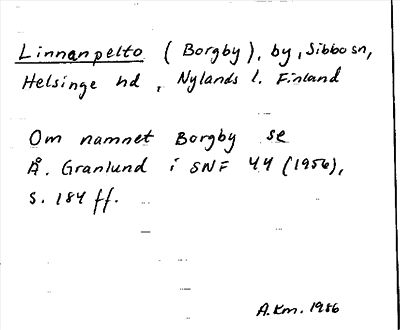 Linnanpelto (Borgby), by, Sibbo sn,
Helsinge hd, Nylands l. Finland
Om namnet Borgby se
Å. Granlund i SNF 44 (1956),
s. 184 ff.
A.Km. 1986